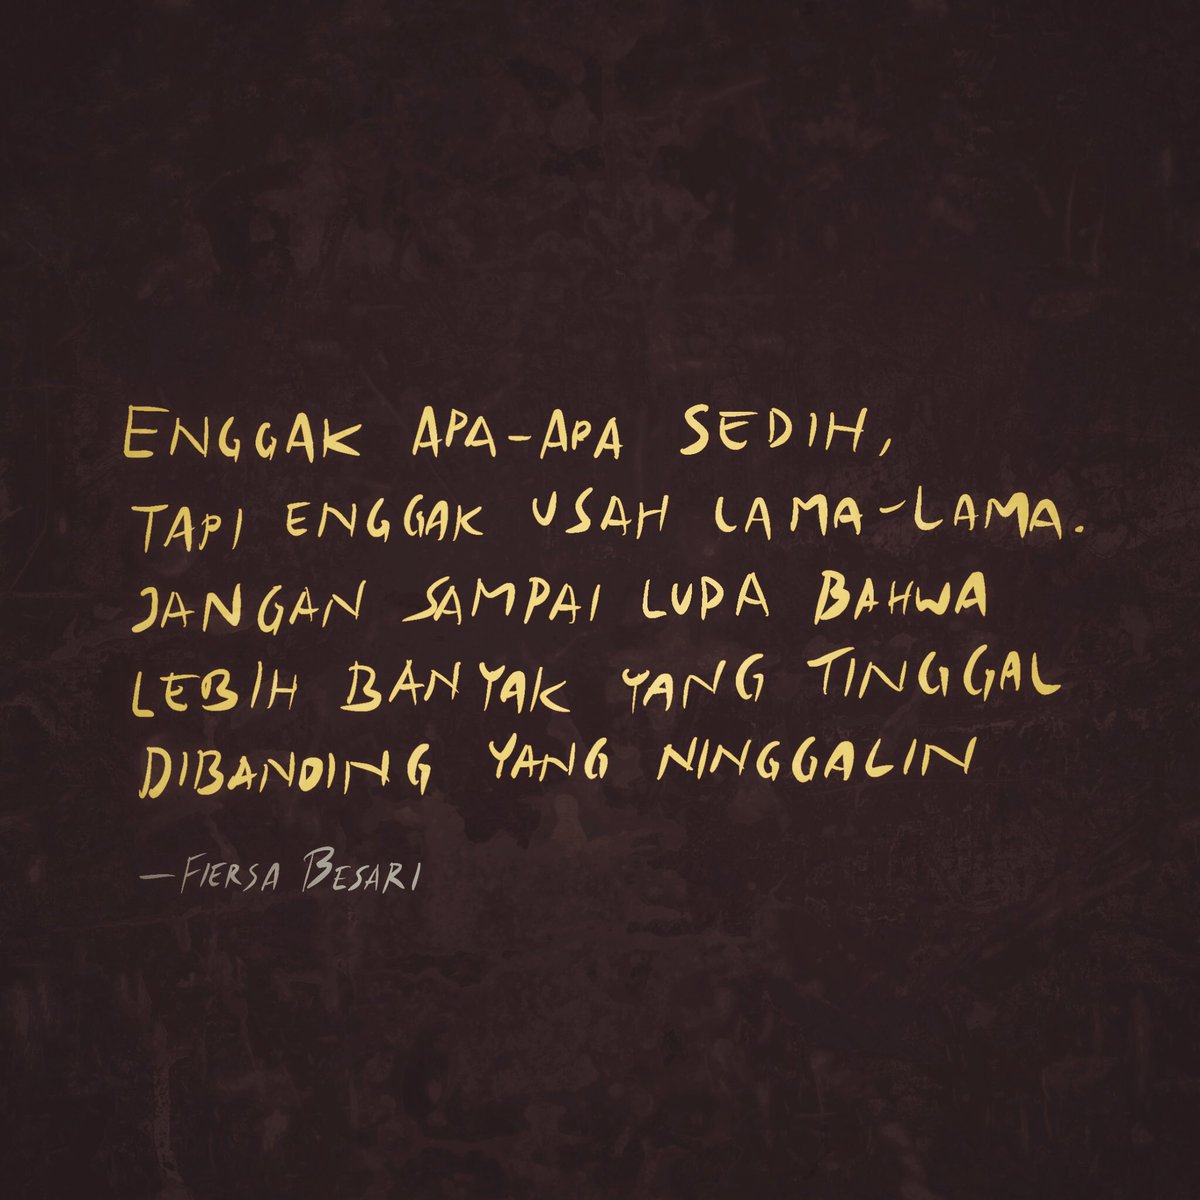 ENGGAK APA-APA SEDIH,
TAPI ENGGAK USAH LAMA-LAMA.
JANGAN SAMPAI LUPA BAHWA
LEBIH BANYAK YANG TINGGAL
DIBANDING YANG NINGGALIN
—FIERSA BESARI